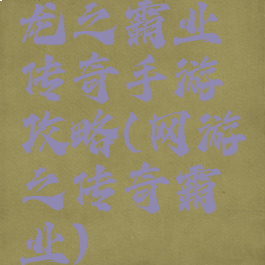 龙之霸业
传奇手游
攻略(网游
之传奇霸
业)